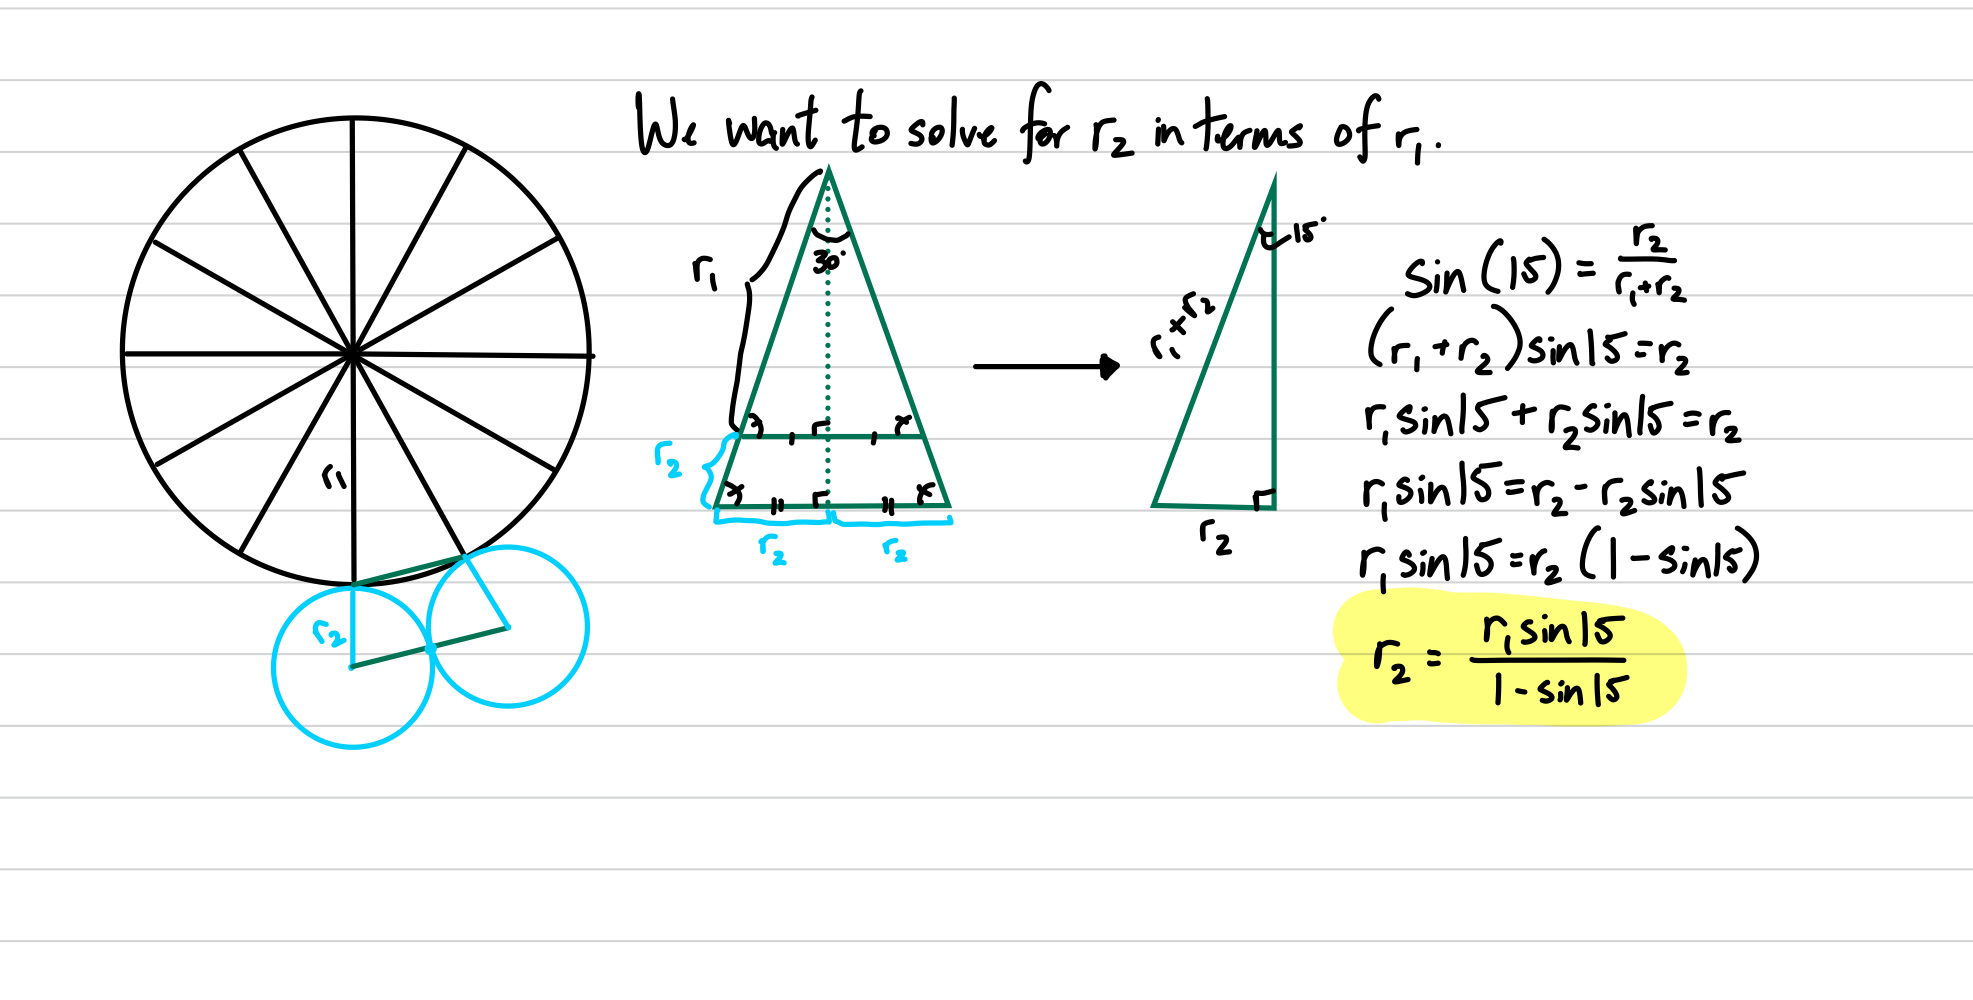 We want to solve for r₂ in terms of r₁.
r₁
30°
r₂
r₂ r₂
r₁
r₂
15°
r₁+r₂
r₂
sin(15) = r₂/(r₁+r₂)
(r₁+r₂)sin15=r₂
r₁sin15+r₂sin15=r₂
r₁sin15=r₂-r₂sin15
r₁sin15=r₂(1-sin15)
r₂ = r₁sin15/(1-sin15)